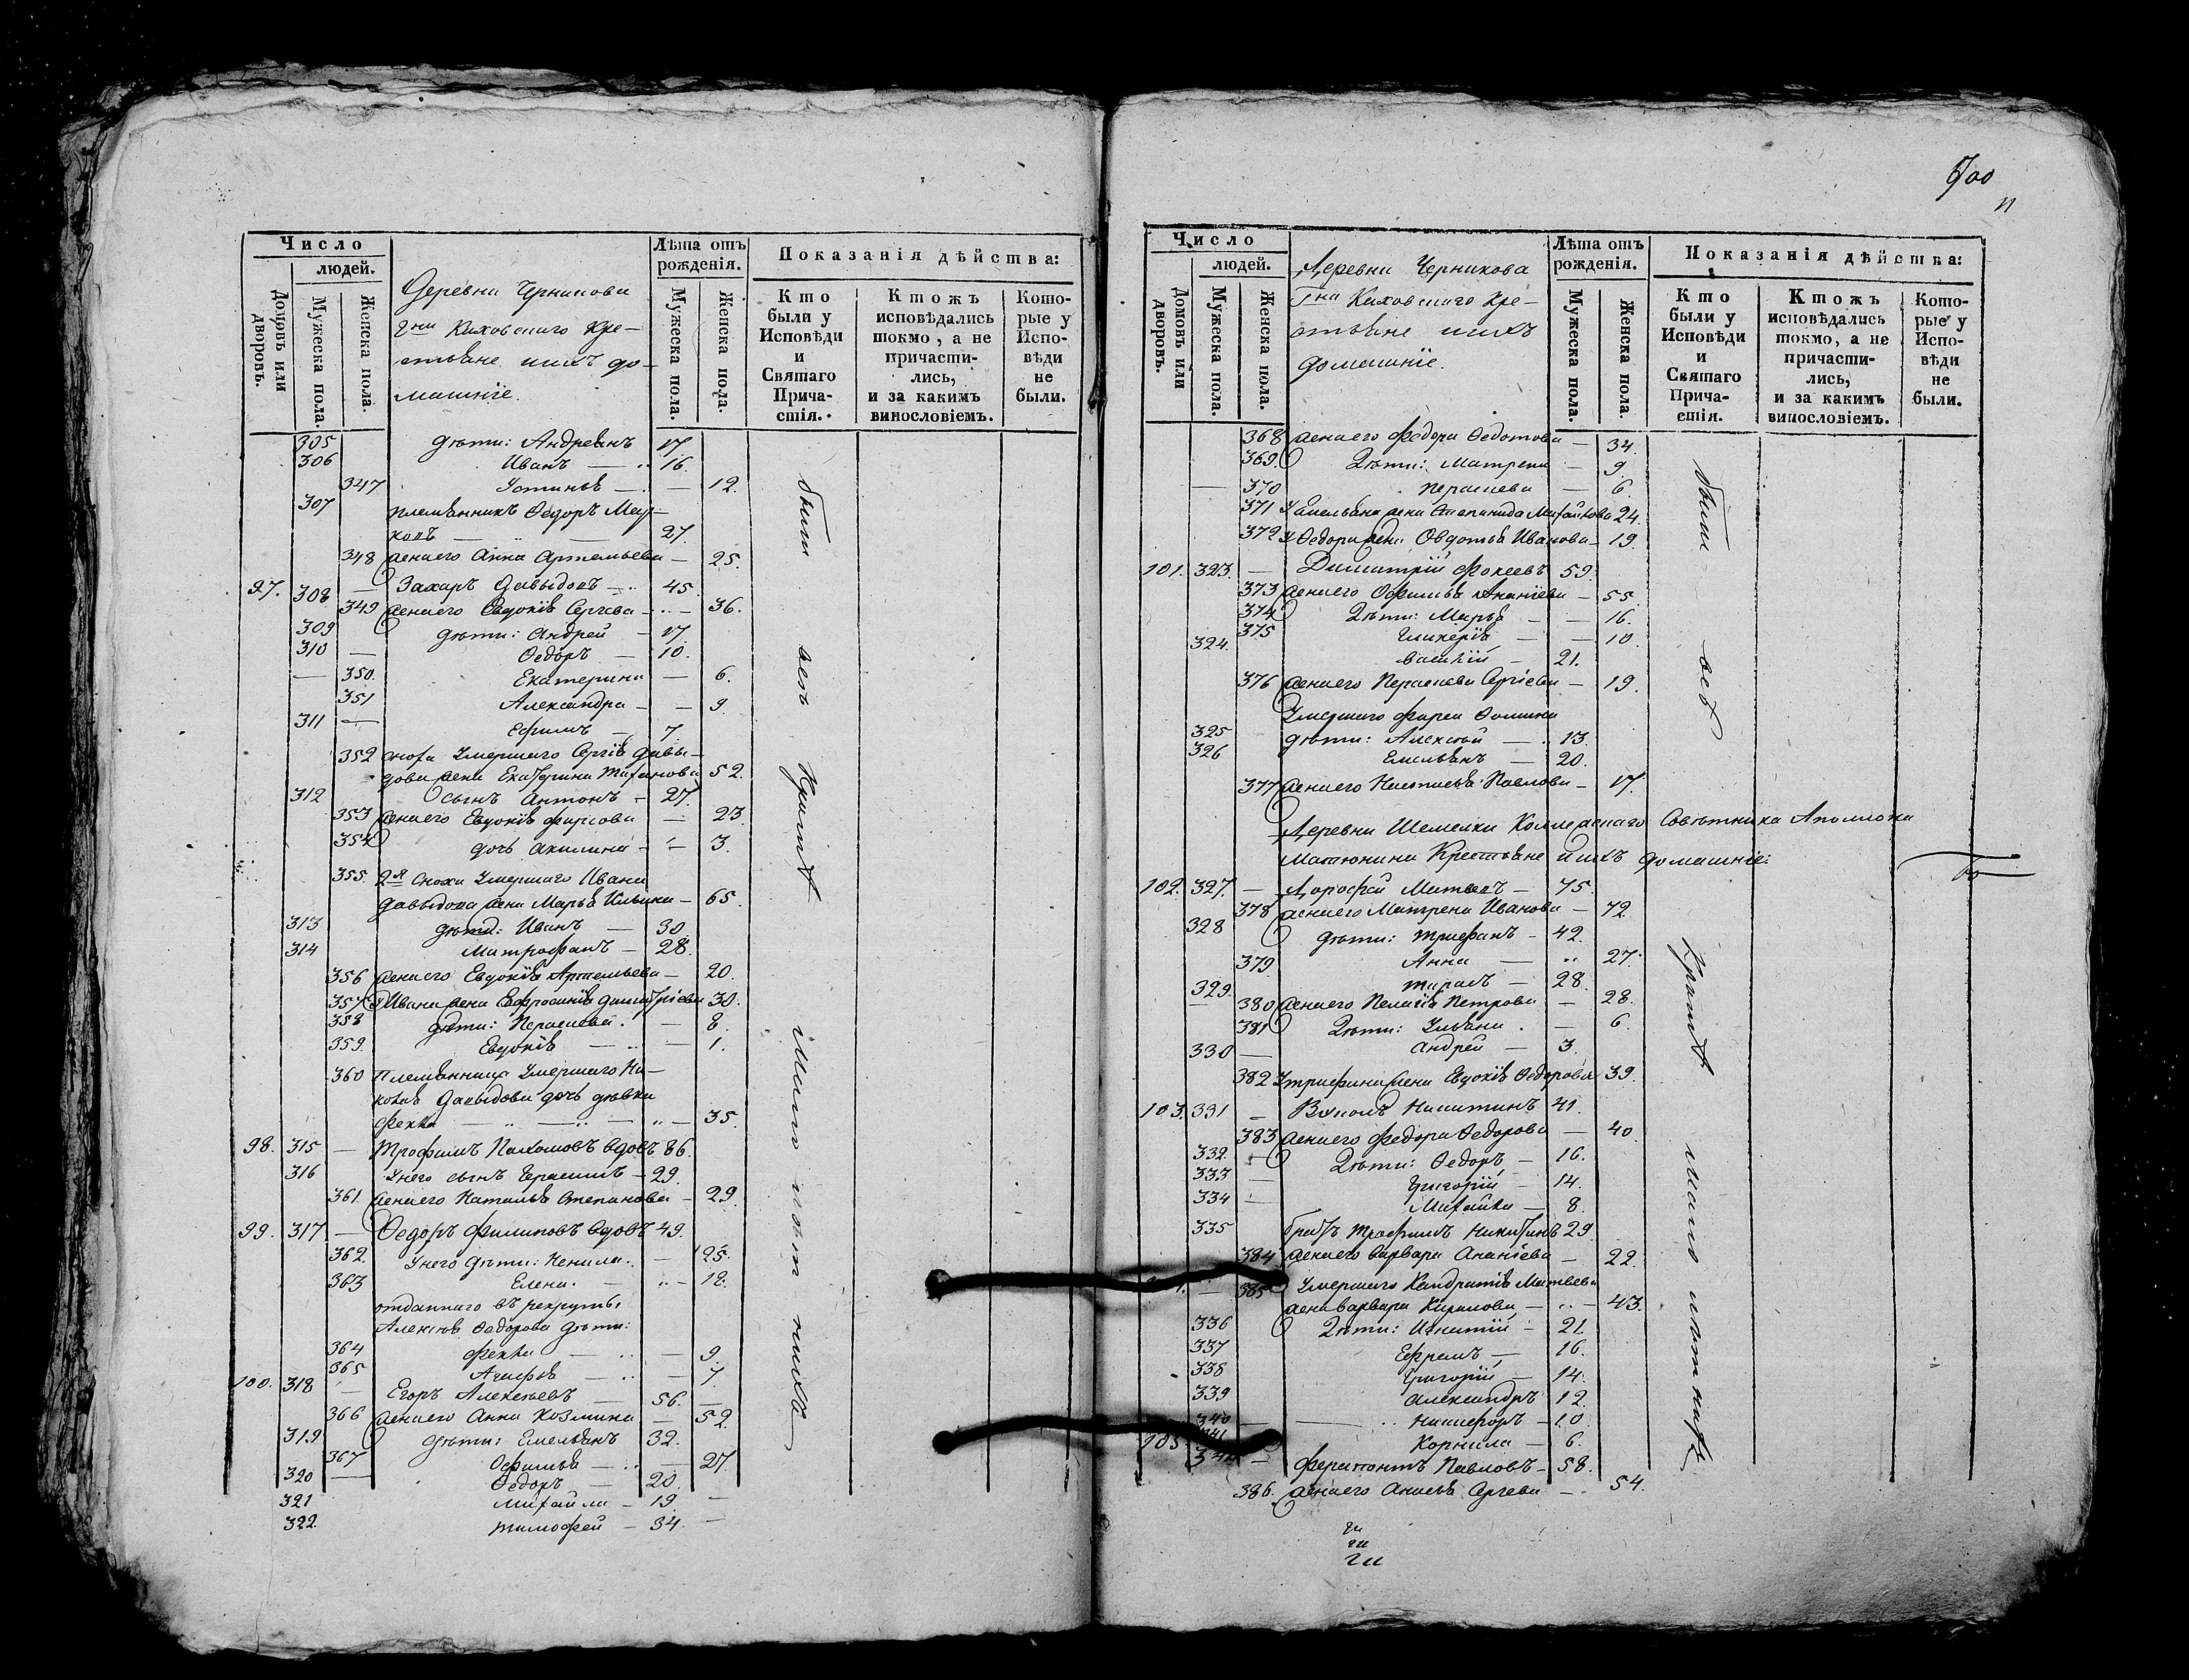 Число
людей.
Домовъ или дворовъ.
Мужеска пола.
Женска пола.
Деревни Черникова
Г<sup>на</sup> Каховскаго Кре-
стьяне ихъ до-
машніе.
Лѣта отъ рожденія.
Мужеска пола.
Женска пола.
Показанія дѣйства:
Кто были у Исповѣди и Святаго Прича-стія.
Ктожъ исповѣдались токмо, а не причасти-лись, и за какимъ винословіемъ.
Кото-рые у Испо-вѣди не были.
305 дѣти: Андреянъ 17
306 Иванъ — 16.
347 Устинья — 12.
307 племянникъ Ѳедоръ
— 27.
348 жена его Анна Артемьева — 25.
97. 308 — Захаръ Давыдовъ — 45.
349 жена его Евдокія Сергѣева — 36.
309 дѣти: Андрей — 17
310 — Ѳедоръ — 10.
— 350. Екатерина — 6.
351 Александра — 9.
311 — Ефимъ — 7.
352 сноха Умершаго Сергія Давы-
дова жена Екатерина 52.
312 сынъ Антонъ — 27.
353 жена его Евдокія Фирсова — 23.
354 дочь Акилина — 3.
355. 2<sup>я</sup> Сноха Умершаго Ивана
Давыдова жена Марья Ильина — 65.
313 дѣти: Иванъ — 30.
314 Митрофанъ — 28.
356 жена его Евдокія Артемьева — 20.
357 У Ивана жена Евфросинія Димитріева 30.
358 дѣти: Перасковья. — 8.
359. Евдокія — 1.
360 Племянница Умершаго
Давыдова дочь дѣвка
Фекла — 35.
98. 315 — Трофимъ Пахомовъ вдовъ 86.
316 У него сынъ Герасимъ — 29.
361. жена его Наталья Степанова — 29
99. 317. — Ѳедоръ Филиповъ вдовъ 49.
362. У него дѣти: — 25.
363 Елена. — 18.
отданнаго въ рекруты
Алексѣя Ѳедорова дѣти:
364 Фекла — 9
365 Агафья — 7.
100. 318 — Егоръ Алексѣевъ — 56. —
366 жена его Анна Козмина — 52.
319 дѣти: Емельянъ 32.
367 Офимья — 27
320 — Ѳедоръ — 20.
321 Михайла — 19. —
322. Тимофей — 34. —
были
всѣ
700
Число
людей.
Домовъ или дворовъ.
Мужеска пола.
Женска пола.
Деревни Черникова
Г<sup>на</sup> Каховскаго Кре-
стьяне ихъ
домашніе.
Лѣта отъ рожденія.
Мужеска пола.
Женска пола.
Показанія дѣйства:
Кто были у Исповѣди и Святаго Прича-стія.
Ктожъ исповѣдались токмо, а не причасти-лись, и за какимъ винословіемъ.
Кото-рые у Испо-вѣди не были.
368 жена его Федора Ѳедотова — 34.
369. Дѣти: Матрена — 9.
— 370 Перасковья — 6.
371 У Емельяна жена Степанида Михайлова 24.
372 У Ѳедора жена Овдотья Иванова — 19.
101. 323. — Димитрій Фокеевъ 59.
373 жена его Офимья Ананіева — 55.
374 Дѣти: Марья — 16.
375 Гликерія — 10.
324. Василій — 21.
376 жена его Перасковья Сергіева — 19.
Умершаго Фирса Ѳомина
325 дѣти: Алексѣй — 13.
326 Емельянъ — 20.
377 жена его Настасья Павлова — 17.
Деревни Шемелки Коллежскаго Совѣтника Аполлона
Матюнина Крестьяне ихъ домашніе:
102. 327. — Дорофей Матвѣевъ — 75.
378 жена его Матрена Иванова — 72.
328 дѣти: Трифанъ — 42.
379 Анна — 27.
329. Тарасъ — 28.
— 380 жена его Пелагія Петрова — 28.
381 Дѣти: Ульяна. — 6.
330 — Андрей — 3.
382 У Трифана жена Евдокія Ѳедорова 39.
103. 331 — Никитинъ 41.
383 жена его Федора Ѳедорова — 40.
332. Дѣти: Ѳедоръ — 16.
333 — Григорій — 14.
334 — Михайла — 8.
335 братъ Трофимъ Никитинъ 29
384 жена его Варвара Ананіева — 22.
— 385 Умершаго Кандратія Матвѣева
жена Варвара Кирилова — 43.
336 Дѣти: Игнатій — 21.
337 Ефремъ — 16.
338 Григорій — 14.
339 Александръ 12.
340 — Никифоръ — 10.
341 Корнила — 6.
105 — Ферапонтъ Павловъ — 58.
386. жена его Анисья Сергѣева — 54.
были
всѣ